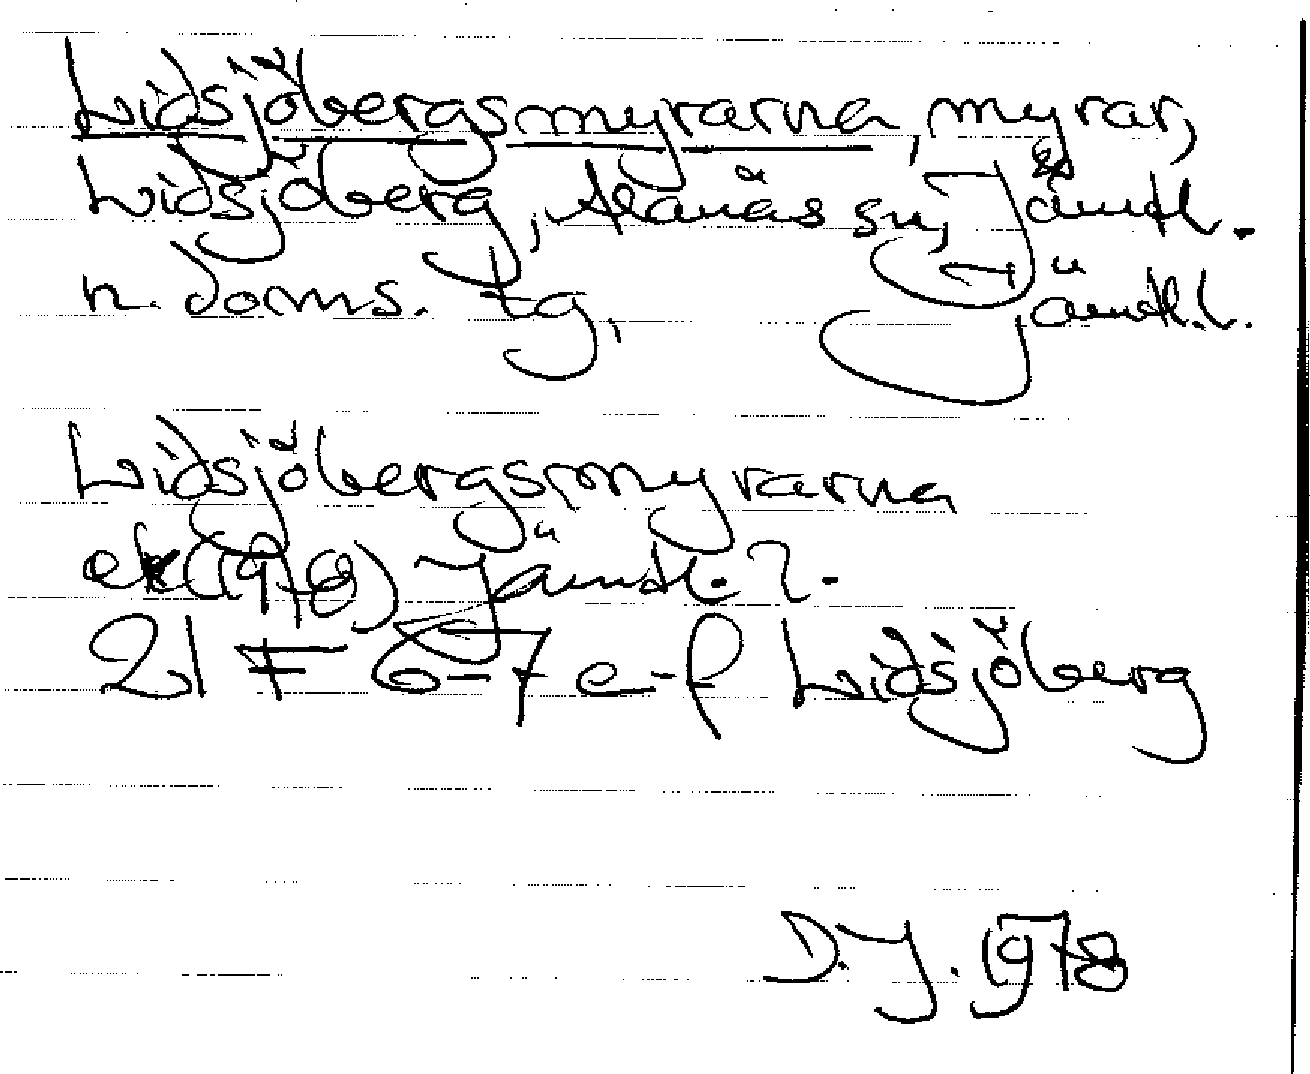 Lidsjöbergsmyrarna, myrar,
Lidsjöberg, Alanäs sn, Jämtl.
n. doms. tg, Jämtl.l.
Lidsjöbergsmyrarna
ek(1978) Jämtl. l.
21 F 6-7 e-f Lidsjöberg
D.J. 1978